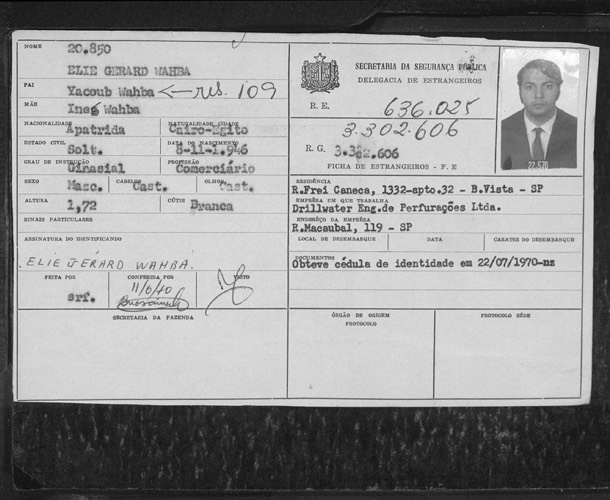 NOME
20.850
ELIE GERARD WAHBA
PAI
Yacoub Wahba ← res. 109
MÃE
Ines Wahba
NACIONALIDADE
Apatrida
NATURALIDADE CIDADE
Cairo-Egito
ESTADO CIVIL
Solt.
DATA DO NASCIMENTO
8-11-1.946
GRAU DE INSTRUÇÃO
Ginasial
PROFISSÃO
Comerciário
SEXO
Masc.
CABELOS
Cast.
OLHOS
Cast.
ALTURA
1,72
CÚTIS
Branca
SINAIS PARTICULARES
ASSINATURA DO IDENTIFICANDO
ELIE GERARD WAHBA.
FEITA POR
srf.
CONFERIDA POR
VISTO
SECRETARIA DA FAZENDA
SECRETARIA DA SEGURANÇA PÚBLICA
DELEGACIA DE ESTRANGEIROS
R. E. 636.025
3.302.606
R. G. 3.302.606
FICHA DE ESTRANGEIROS - F. E
22.570
RESIDÊNCIA
R.Frei Caneca, 1332-apto.32 - B.Vista - SP
EMPRÊSA EM QUE TRABALHA
Drillwater Eng.de Perfurações Ltda.
ENDERÊÇO DA EMPRÊSA
R.Macaubal, 119 - SP
LOCAL DE DESEMBARQUE
DATA
CARATER DO DESEMBARQUE
DOCUMENTOS
Obteve cédula de identidade em 22/07/1970-nz
ÓRGÃO DE ORIGEM
PROTOCOLO
PROTOCOLO SÉDE